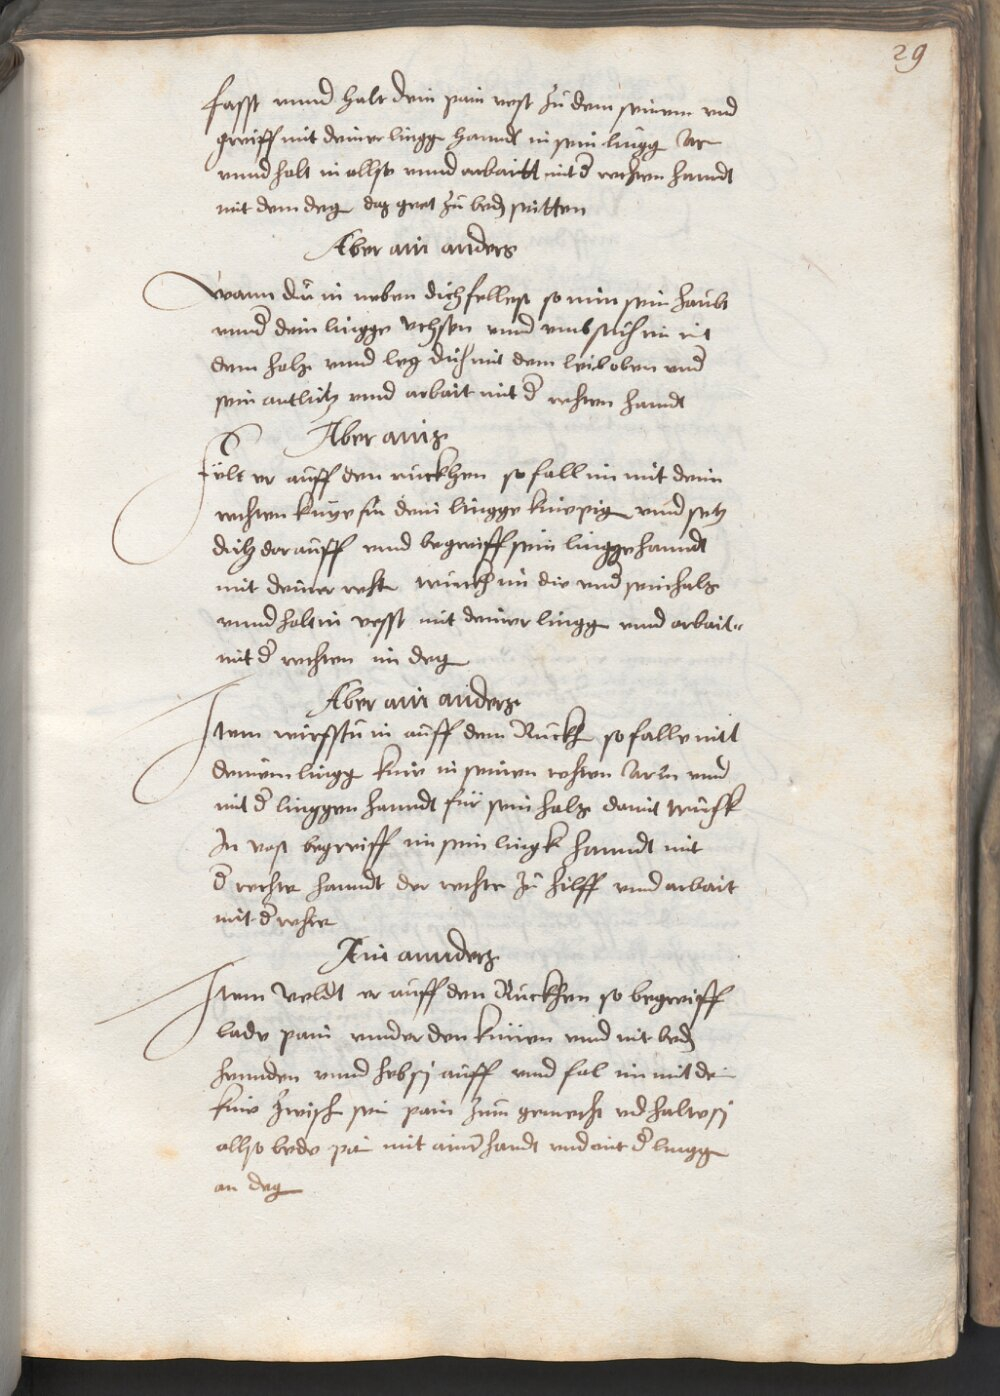 29
fasst vnnd halt dein pain vest zu dem seinem vnd
greiff mit deiner lingg hanndt in sein lingg Ar
vnnd halt in allso vnnd arbaitt mit d rechten hanndt
mit dem deg das geet zu bed seitten
Aber ain anders
wann du in neben dich fellest so nim sein haubt
vnnd dein lingge vchsen vnnd vmb in mit
dem halß vnnd leg dich mit dem leib oben vnd
sein antlutz vnnd arbait mit d rechten handt
Aber ainß
felt er auff den ruckhen so fall im mit dein
rechten knye in dein lingge kniepig vnnd setz
dich darauff vnnd begreiff sein lingge hanndt
mit deiner recht truckh im die vnd sein halß
vnnd halt in vesst mit deiner lingg vnnd arbait
mit d rechten im deg
Aber ain anderß
Item würffstu in auff dem Ruckh so falle mit
deinem lingg knie in seinen rechten Arm vnnd
mit d linggen hanndt für sein halß damit truckh
In vast begreiff im sein lingk hanndt mit
d rechte hanndt der rechte zu hilff vnnd arbait
mit d rechte
Ain annderß
Item veldt er auff den Ruckhen so begreiff
bade pain vnnder den knien vnnd mit bed
hennden vnnd heb sy auff vnnd fal im mit dei
knie zwisch sein pain zum gemecht vnd halt sy
allso bede pai mit ainer handt vnd mit d lingg
an deg